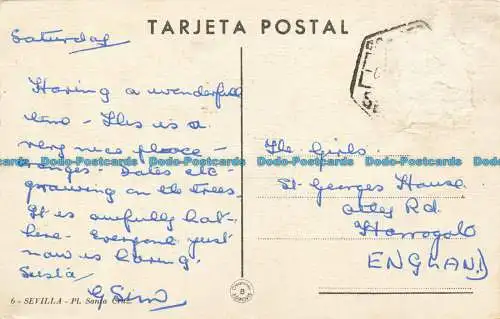 TARJETA POSTAL
Saturday
Having a wonderfull
time - This is a
very nice place -
oranges - Dates etc -
growing on the trees.
It is awfully hot -
here - Everyone just
now is having
Siesta
6 - SEVILLA - Pl. Santa Cruz
The Girls.
St Georges House
Otley Rd.
Harrogate
ENGLAND
Dodo-Postcards Dodo-Postcards Dodo-Postcards Dodo-Postcards Dodo-Postcards